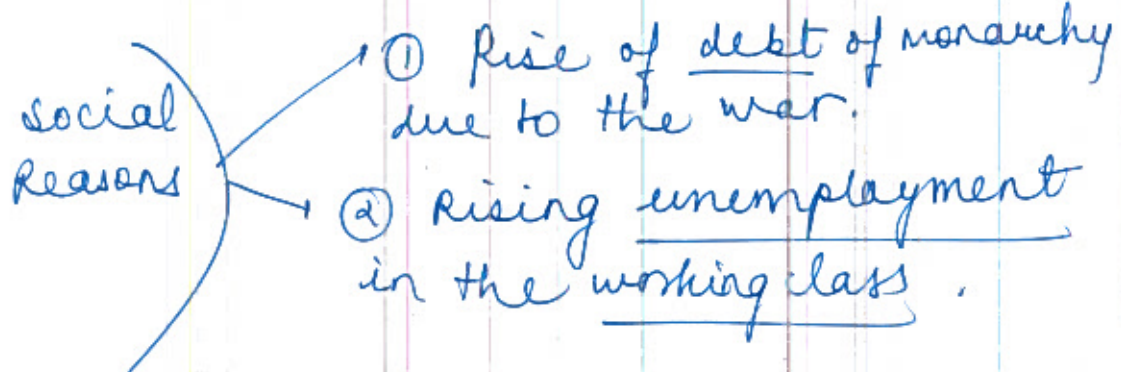 Social
Reasons
① Rise of debt of monarchy
due to the war.
② Rising unemployment
in the working class.